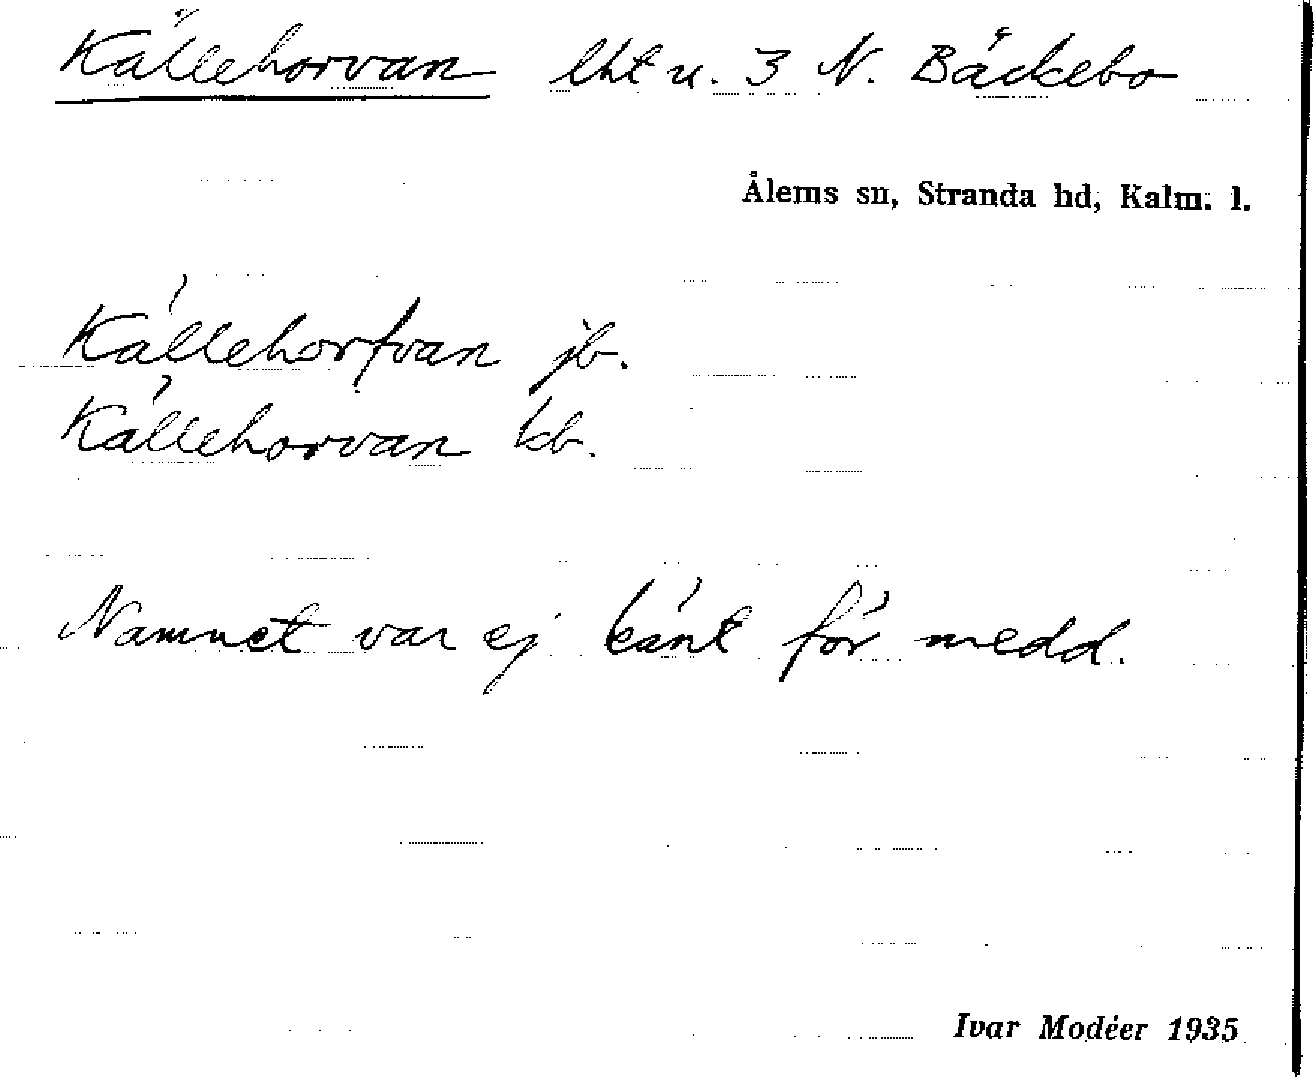 Källehorvan lht u. 3 N. Bäckebo
Ålems sn, Stranda hd, Kalm. l.
Källehorfvan jb.
Källehorvan kb.
Namnet var ej känt för medd.
Ivar Modéer 1935